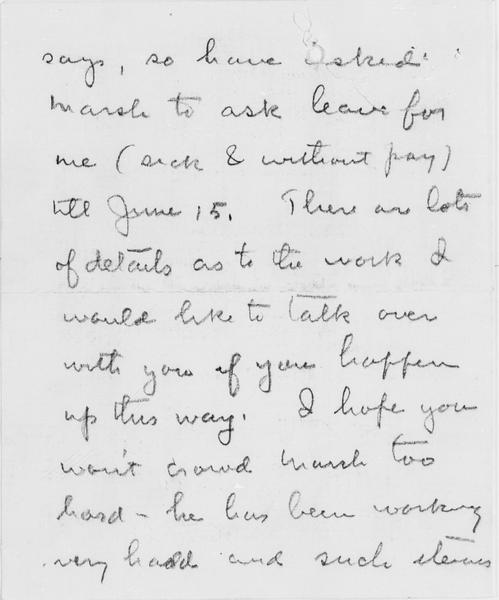 says, so have asked
Marsh to ask leave for
me (sick & without pay)
till June 15. There are lots
of details as to the work I
would like to talk over
with you if you happen
up this way. I hope you
won't crowd Marsh too
hard - he has been working
very hard and such items